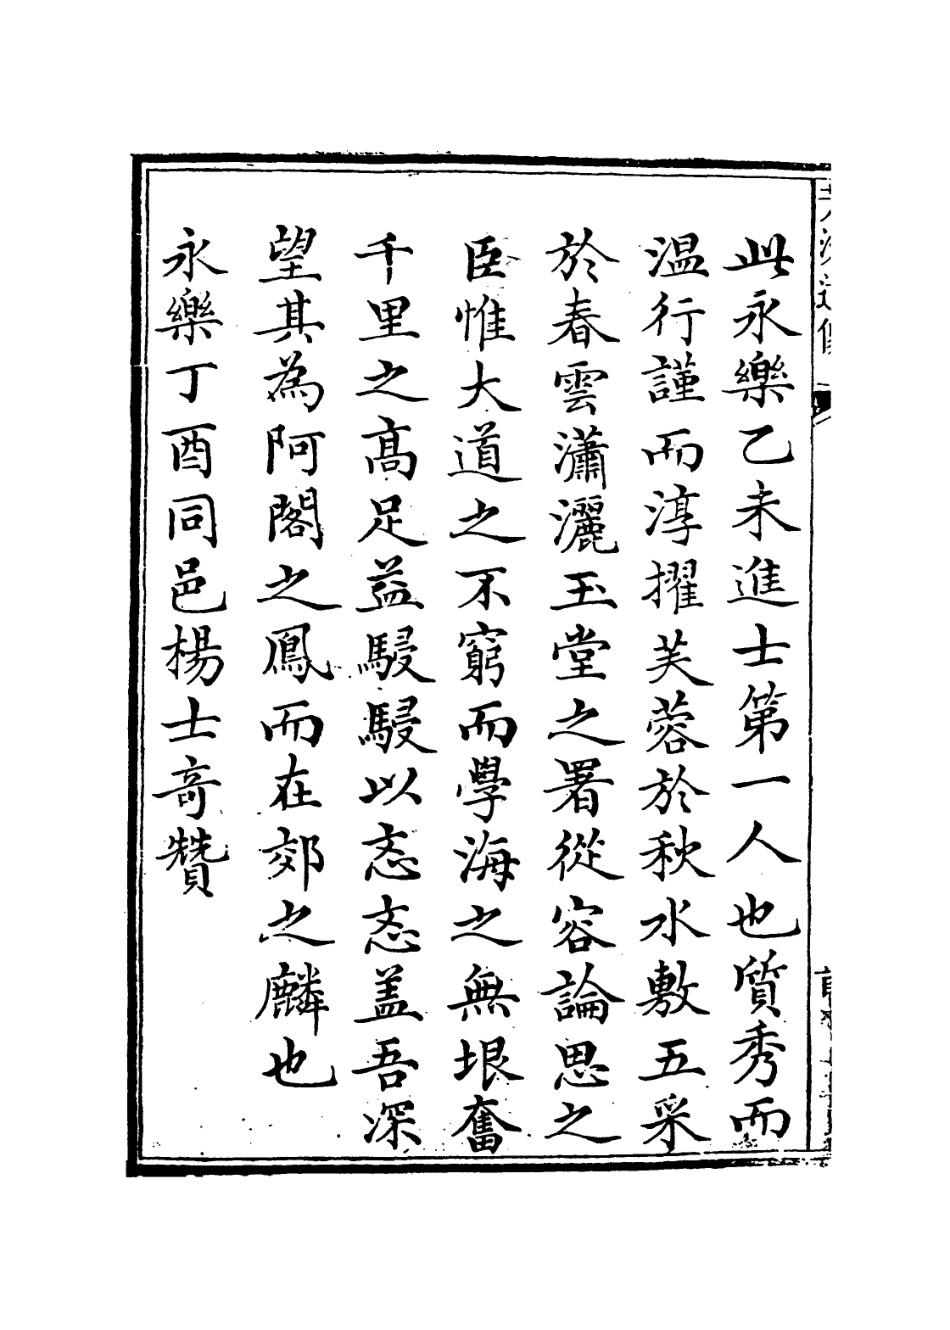 此永樂乙未進士第一人也質秀而
溫行謹而淳擢芙蓉於秋水敷五采
於春雲瀟灑玉堂之署從容論思之
臣惟大道之不窮而學海之無垠奮
千里之高足益駸駸以忞忞盖吾深
望其為阿閣之鳳而在郊之麟也
永樂丁酉同邑楊士竒贊